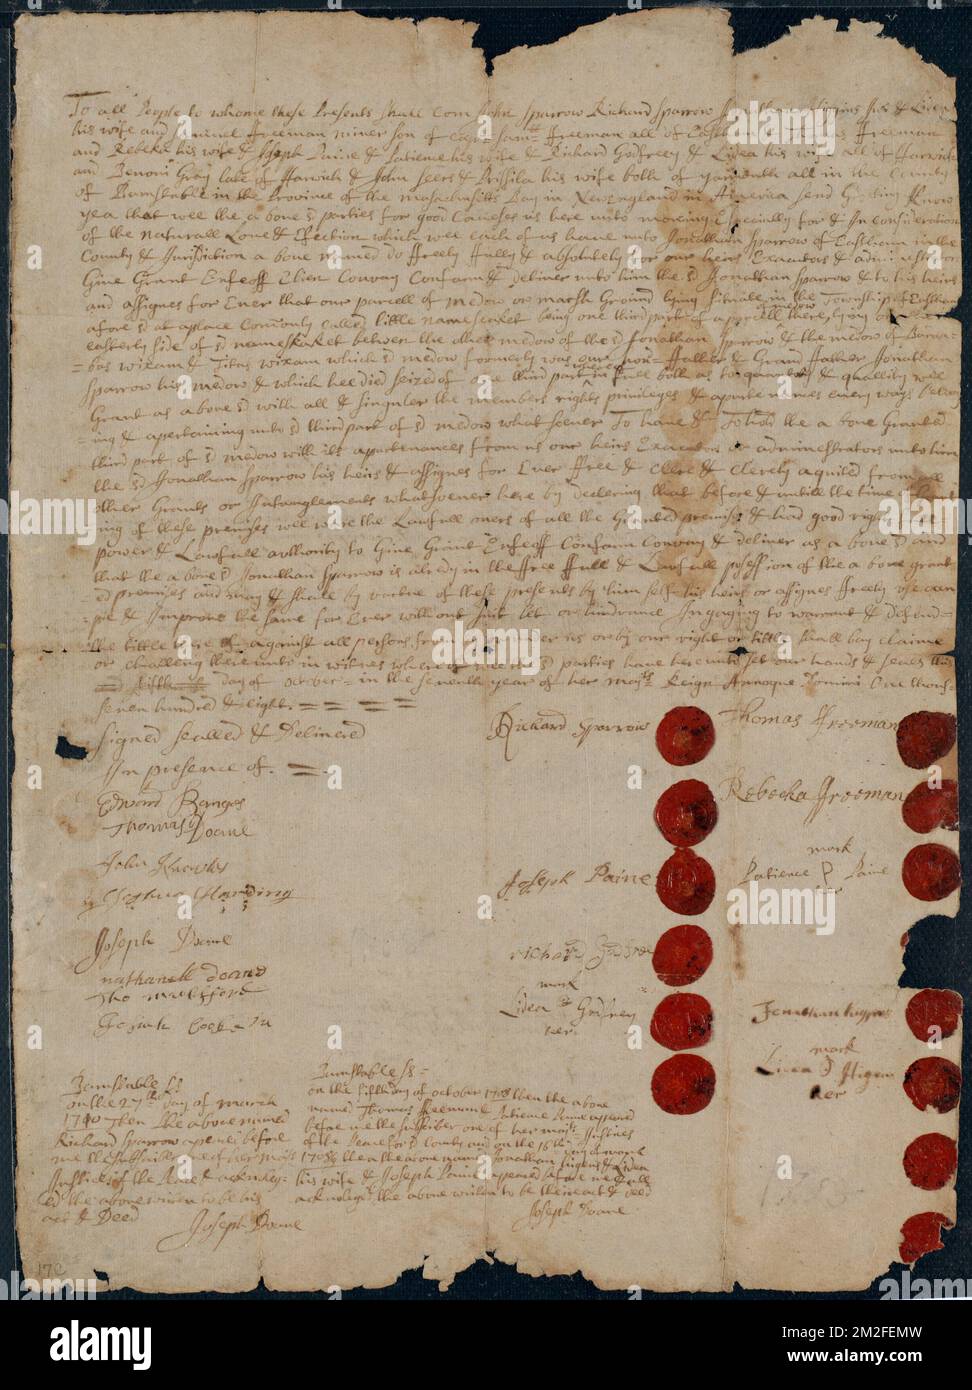 To all People to whome these Presents shall Com John Sparrow Richard Sparrow Jonathan Higins Jur & Lidea
his wife and Samuel Freeman miner son of Capt Samll Freeman all of Eastham & Thomas Freeman
and Rebeka his wife & Joseph Paine & Patience his wife & Richard Godfreey & Lidea his wife all of Harwich
and Benoni Gray late of Harwich & John Seers & Prissila his wife both of yarmouth all in the County
of Barnstable in the Province of the Masachusitts Bay in New england in America send Greting Know
yea that wee the a bone sd parties for good Causes us here unto moveing Especially for & In consideration
of the naturall Love & Efection which wee each of us have unto Jonathan Sparrow of Eastham in the
County & Jurisdiction a bone named do ffreely ffully & absolutely for our heirs Executors & administrators
Give Grant Enfeoff Convay Confarm & deliver unto him the sd Jonathan Sparrow & to his heirs
and assignes for Ever that our parcell of medow or marsh Ground lying situate in the Township of Eastham
afore sd at a place Comonly called little nameskaket being one third part of a parcell there, lying on
easterly side of sd nameskaket between the other medow of the sd Jonathan Sparrow & the medow of Barna=
=bas wixam & Titus wixam which sd medow formerly was our ffather & Grand ffather Jonathan
Sparrow his medow & which hee died seized of one third part in full both as to quantity & quallity wee
Grant as a bone sd with all & singuler the members rights priviledges & apurtenances every ways belong
=ing & apertaining unto sd third part of sd medow what soever To have & To hold the a bone Granted
third part of sd medow with its apurtenances from us our heirs Executors or administrators unto him
the sd Jonathan Sparrow his heirs & assignes for Ever ffree & Clere & clerely aquited from all
other Grants or Intanglements whatsoever here by declering that before & untill the time
ing of these premises wee were the Lawfull oners of all the Granted premises & had good right
power & Lawfull authority to Give Grant Enfeoff Confarm Convay & deliver as a bone sd and
that the a bone sd Jonathan Sparrow is alredy in the ffree ffull & Lawfull possession of the a bone grant
ed premises and may & shall by vartue of these presents by him self his heirs or assignes freely use
& Improve the same for Ever without Just let or hindrance Ingaging to warrant & Defend
the tittle here of against all persons from or under us or by our right or tittle shall lay claime
or challeng there unto in witnes where of wee the sd parties have here unto set our hands & seales this
fifth day of October in the seventh year of her majts Reign Annoque Domini One thous=
seven hundred & eight.
signed sealled & Delivered
In presence of.
Richard Sparrow
Thomas Freeman
Edward Banges
Thomas Doane
Rebecka Freeman
John Knowles
Joshua Harding
Joseph Paine
mark
Patience P Paine
her
Joseph Doane
nathanell doane
Tho mulfford
Richard Godfree
mark
Lidea Godfrey
her
Jonathan higgins
mark
Lidea Higens
her
Barnstable Ss
on the 27th day of march
1710 Then the above named
Richard Sparrow apeared before
me the subscriber one of her majts
Justices of the Peace & acknoleg=
ed the above writen to be his
act & Deed
Joseph Doane
Barnstable Ss=
on the fifth day of october 1708 then the above
named Thomas Freeman & Patience Paine apeared
before me the subscriber one of her majts Justices
of the Peace for sd County and on the 16th day of
1708 then the above named Jonathan Higens & Lidea
his wife & Joseph Paine apeared before me & all
acknoleged the above writen to be their act & deed
Joseph Doane
alamy
2M2FEMW
www.alamy.com